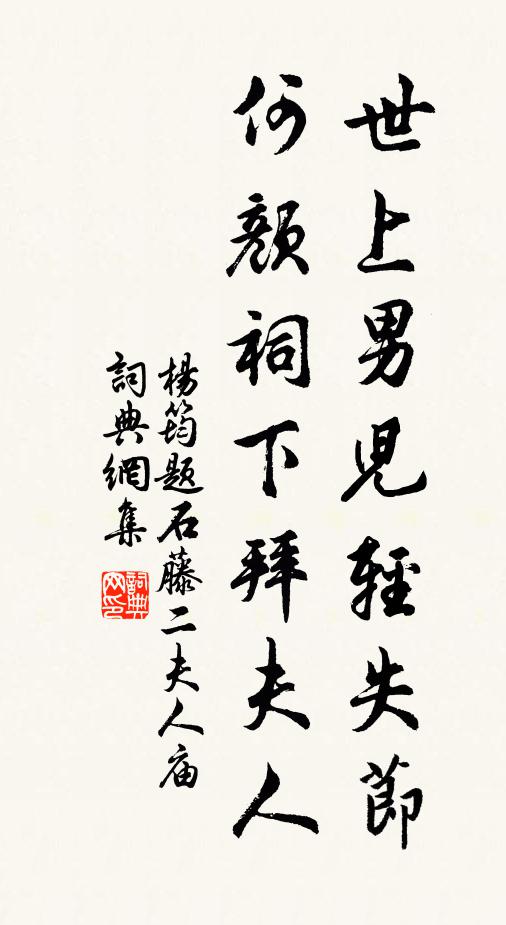 世上男児輕失節
何顏祠下拜夫人
楊筠題石藤二夫人庙
詞典網集
詞典网印